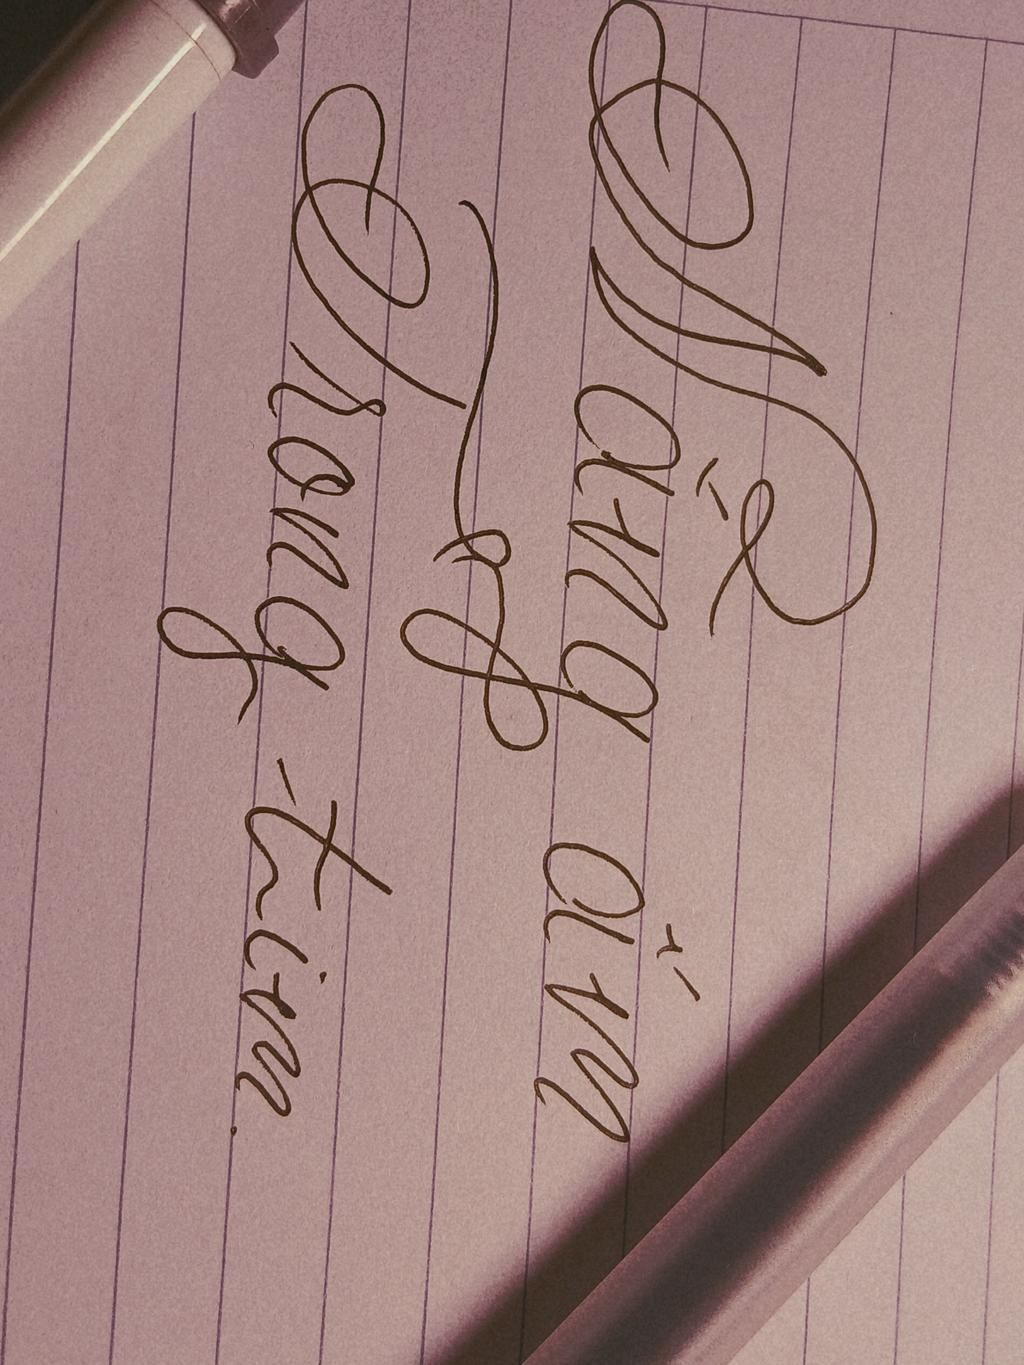 Nắng ấm
Trong tim.